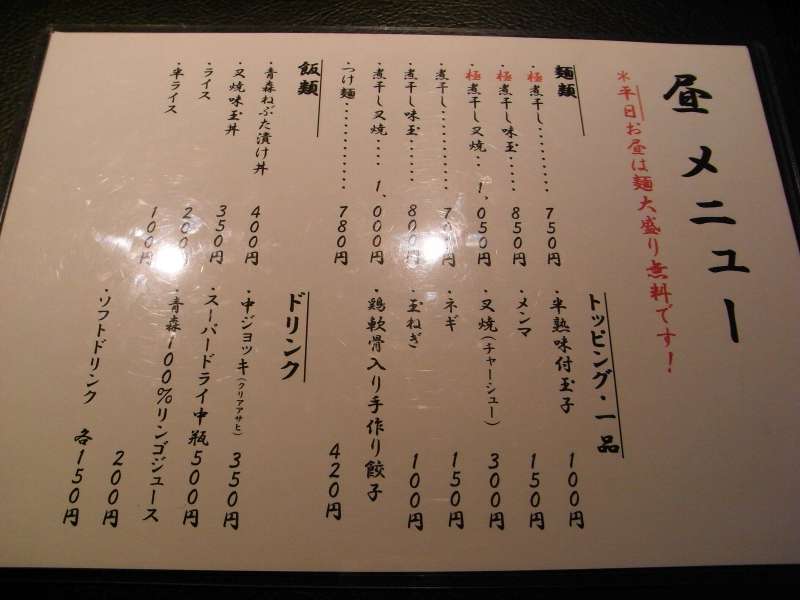 昼メニュー
*平日お昼は麺大盛り無料です!
麺類
・極煮干し......... 750円
・極煮干し味玉..... 850円
・極煮干し叉焼... 1,050円
・煮干し.......... 700円
・煮干し味玉...... 800円
・煮干し叉焼.... 1,000円
・つけ麺........... 780円
飯類
・青森ねぶた漬け丼 400円
・叉焼味玉丼 350円
・ライス 200円
・半ライス 100円
トッピング・一品
・半熟味付玉子 100円
・メンマ 150円
・叉焼(チャーシュー) 300円
・ネギ 150円
・玉ねぎ 100円
・鶏軟骨入り手作り餃子 420円
ドリンク
・中ジョッキ(クリアアサヒ) 350円
・スーパードライ中瓶 500円
・青森100%リンゴジュース 200円
・ソフトドリンク 各150円